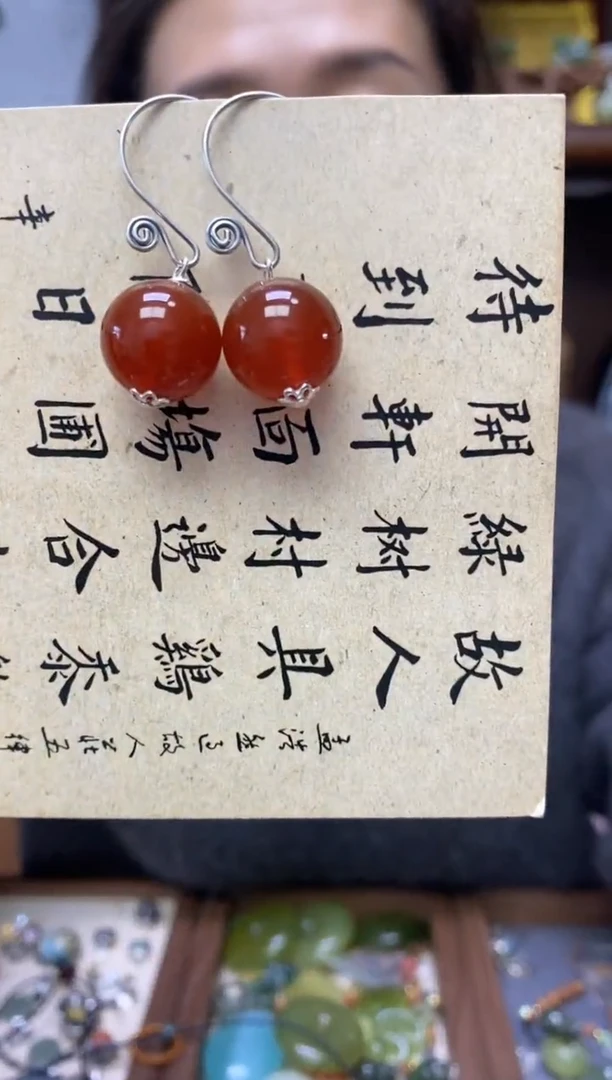 孟浩然過故人莊五律
故人具鷄黍
綠树村邊合
開軒面場圃
待到日